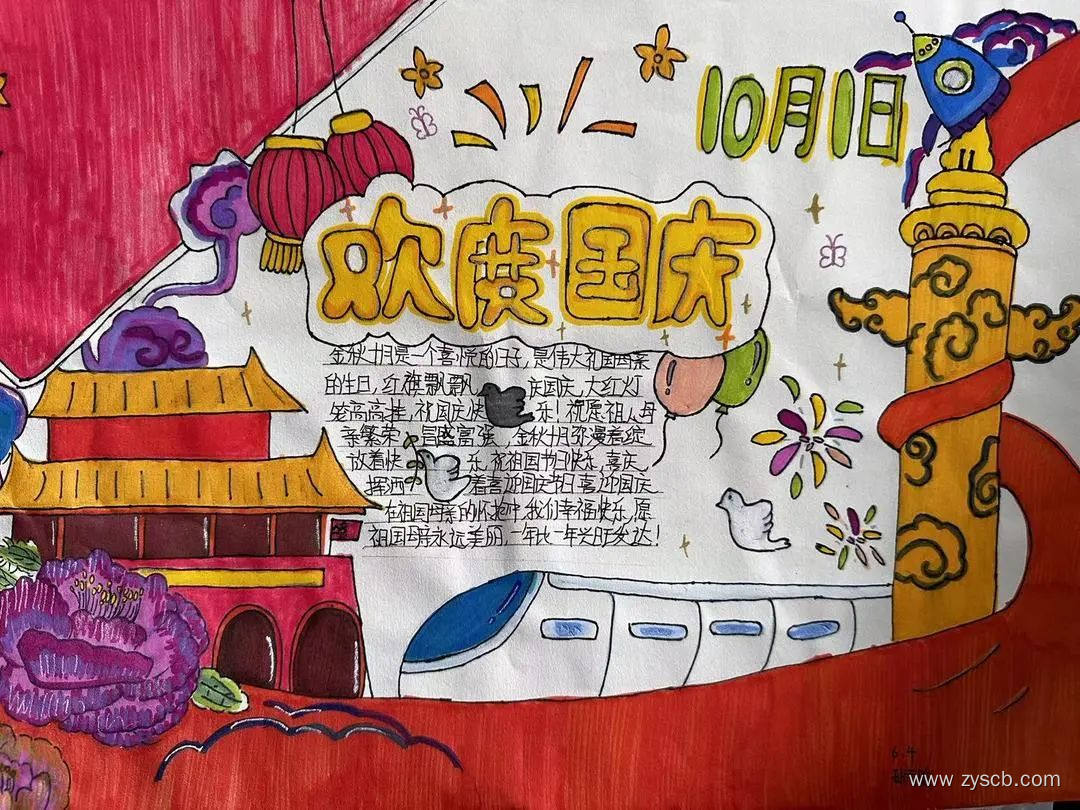 10月1日
欢度国庆
金秋十月是一个喜悦的日子，是伟大祖国母亲
的生日，红旗飘飘 庆国庆，大红灯
笼高高挂，祝国庆快 乐！祝愿祖 母
亲繁荣 昌盛富强，金秋十月弥漫着绽
放着快 乐，祝祖国节日快乐，喜庆
挥洒 着喜迎国庆节日喜迎国庆
在祖国母亲的怀抱中，我们幸福快乐，愿
祖国母亲永远美丽，一年比一年兴旺发达！
6.4
www.zyscb.com